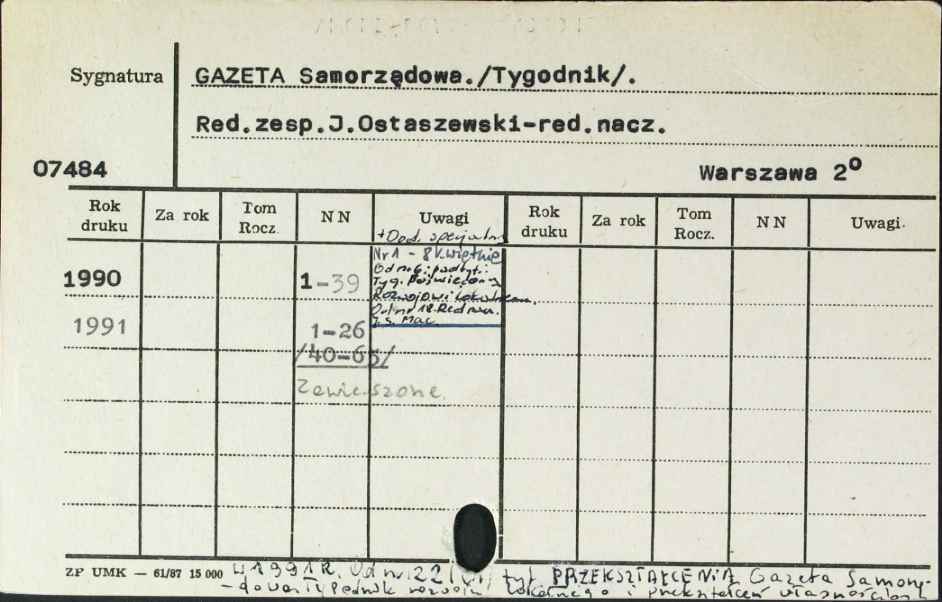 Sygnatura
GAZETA Samorządowa./Tygodnik/.
Red.zesp.J.Ostaszewski-red.nacz.
07484
Warszawa 2º
Rok druku Za rok Tom Rocz. NN Uwagi Rok druku Za rok Tom Rocz. NN Uwagi.
+Dod. specjalny
Nr 1 - 8 kwietnia
1990 1-39
Od nr 6. podtyt.:
Tyg. Poświęcony
Rozwojowi Lokalnemu.
Od nr 18. Red. nacz.
1991 1-26
/40-65/
Zawieszone.
ZP UMK — 61/87 15 000
W 1991 R. Od nr 22 tyt. PRZEKSZTAŁCENIA Gazeta Samorzą-
-dowa Tygodnik rozwoju lokalnego i przekształceń własnościow